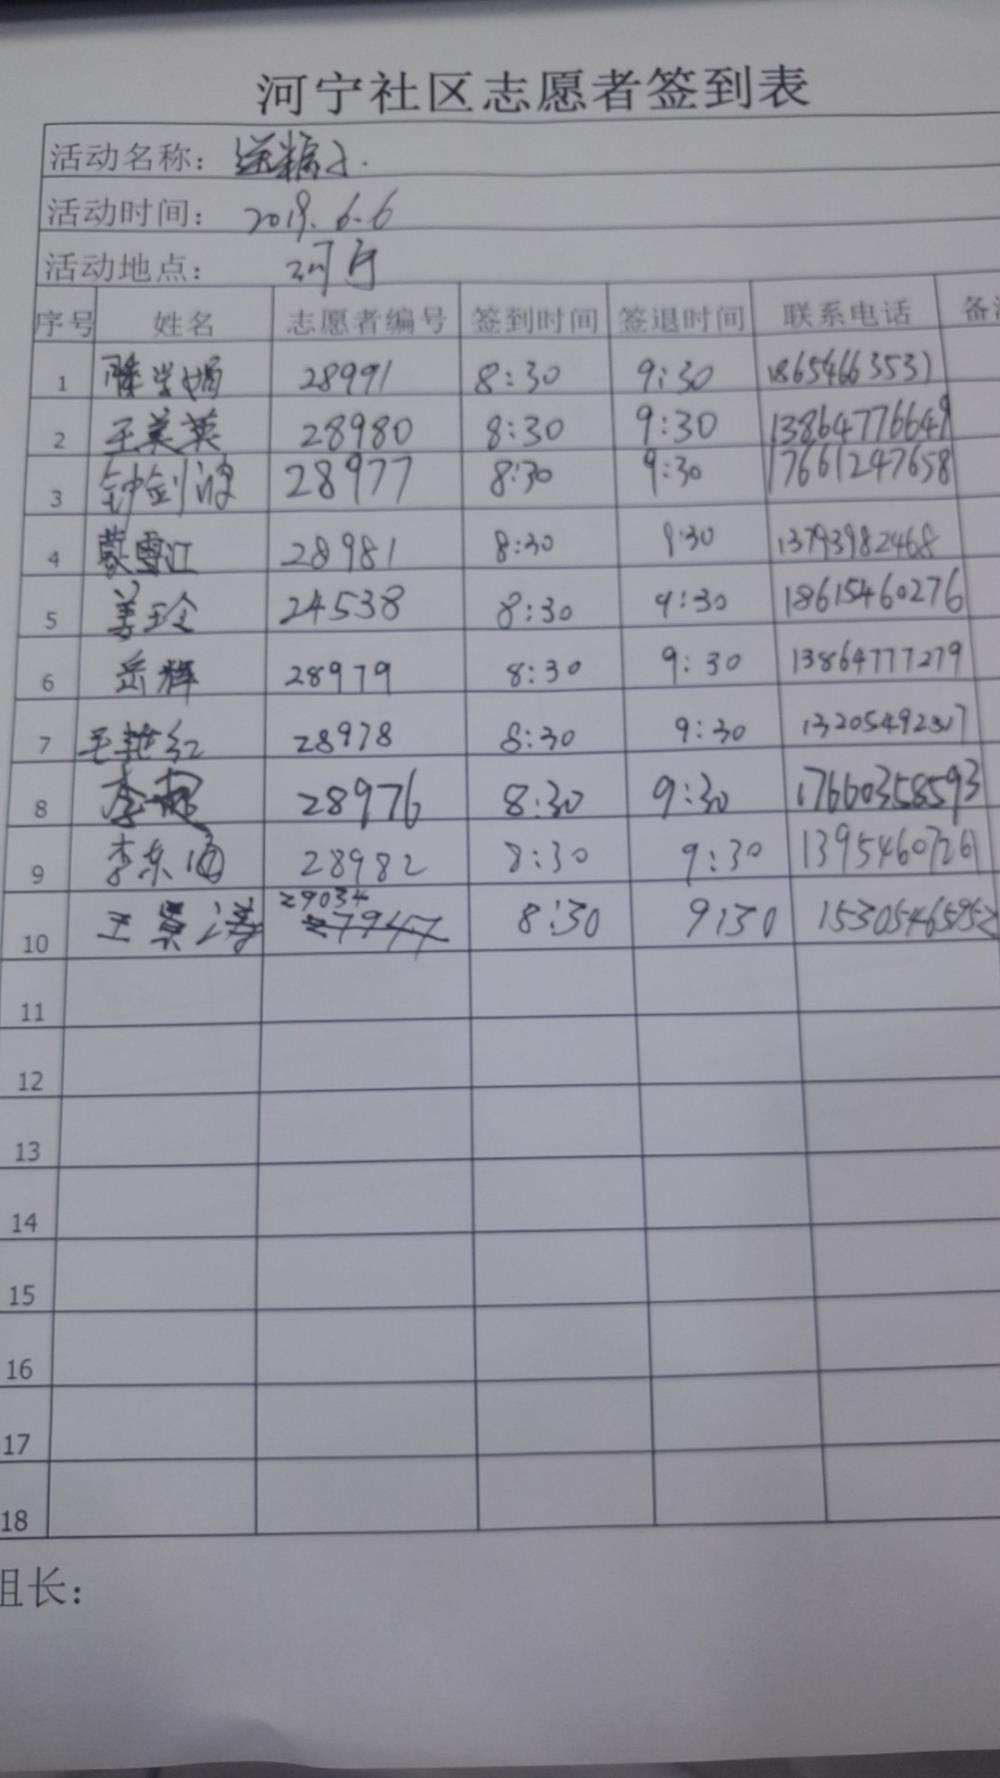 河宁社区志愿者签到表
活动名称：送粽子.
活动时间：2019.6.6
活动地点：河宁
序号 姓名 志愿者编号 签到时间 签退时间 联系电话 备注
1 28991 8:30 9:30 18654663537
2 王美英 28980 8:30 9:30 13864776649
3 钟剑波 28977 8:30 9:30 17661247658
4 蒙雪江 28981 8:30 9:30 13793982468
5 姜玲 24538 8:30 9:30 18615460276
6 岳辉 28979 8:30 9:30 13864777279
7 毛艳红 28978 8:30 9:30 13205492317
8 李 28976 8:30 9:30 17660358593
9 李东 28982 8:30 9:30 13954607261
29034
10 王 27947 8:30 9:30
11
12
13
14
15
16
17
18
组长：